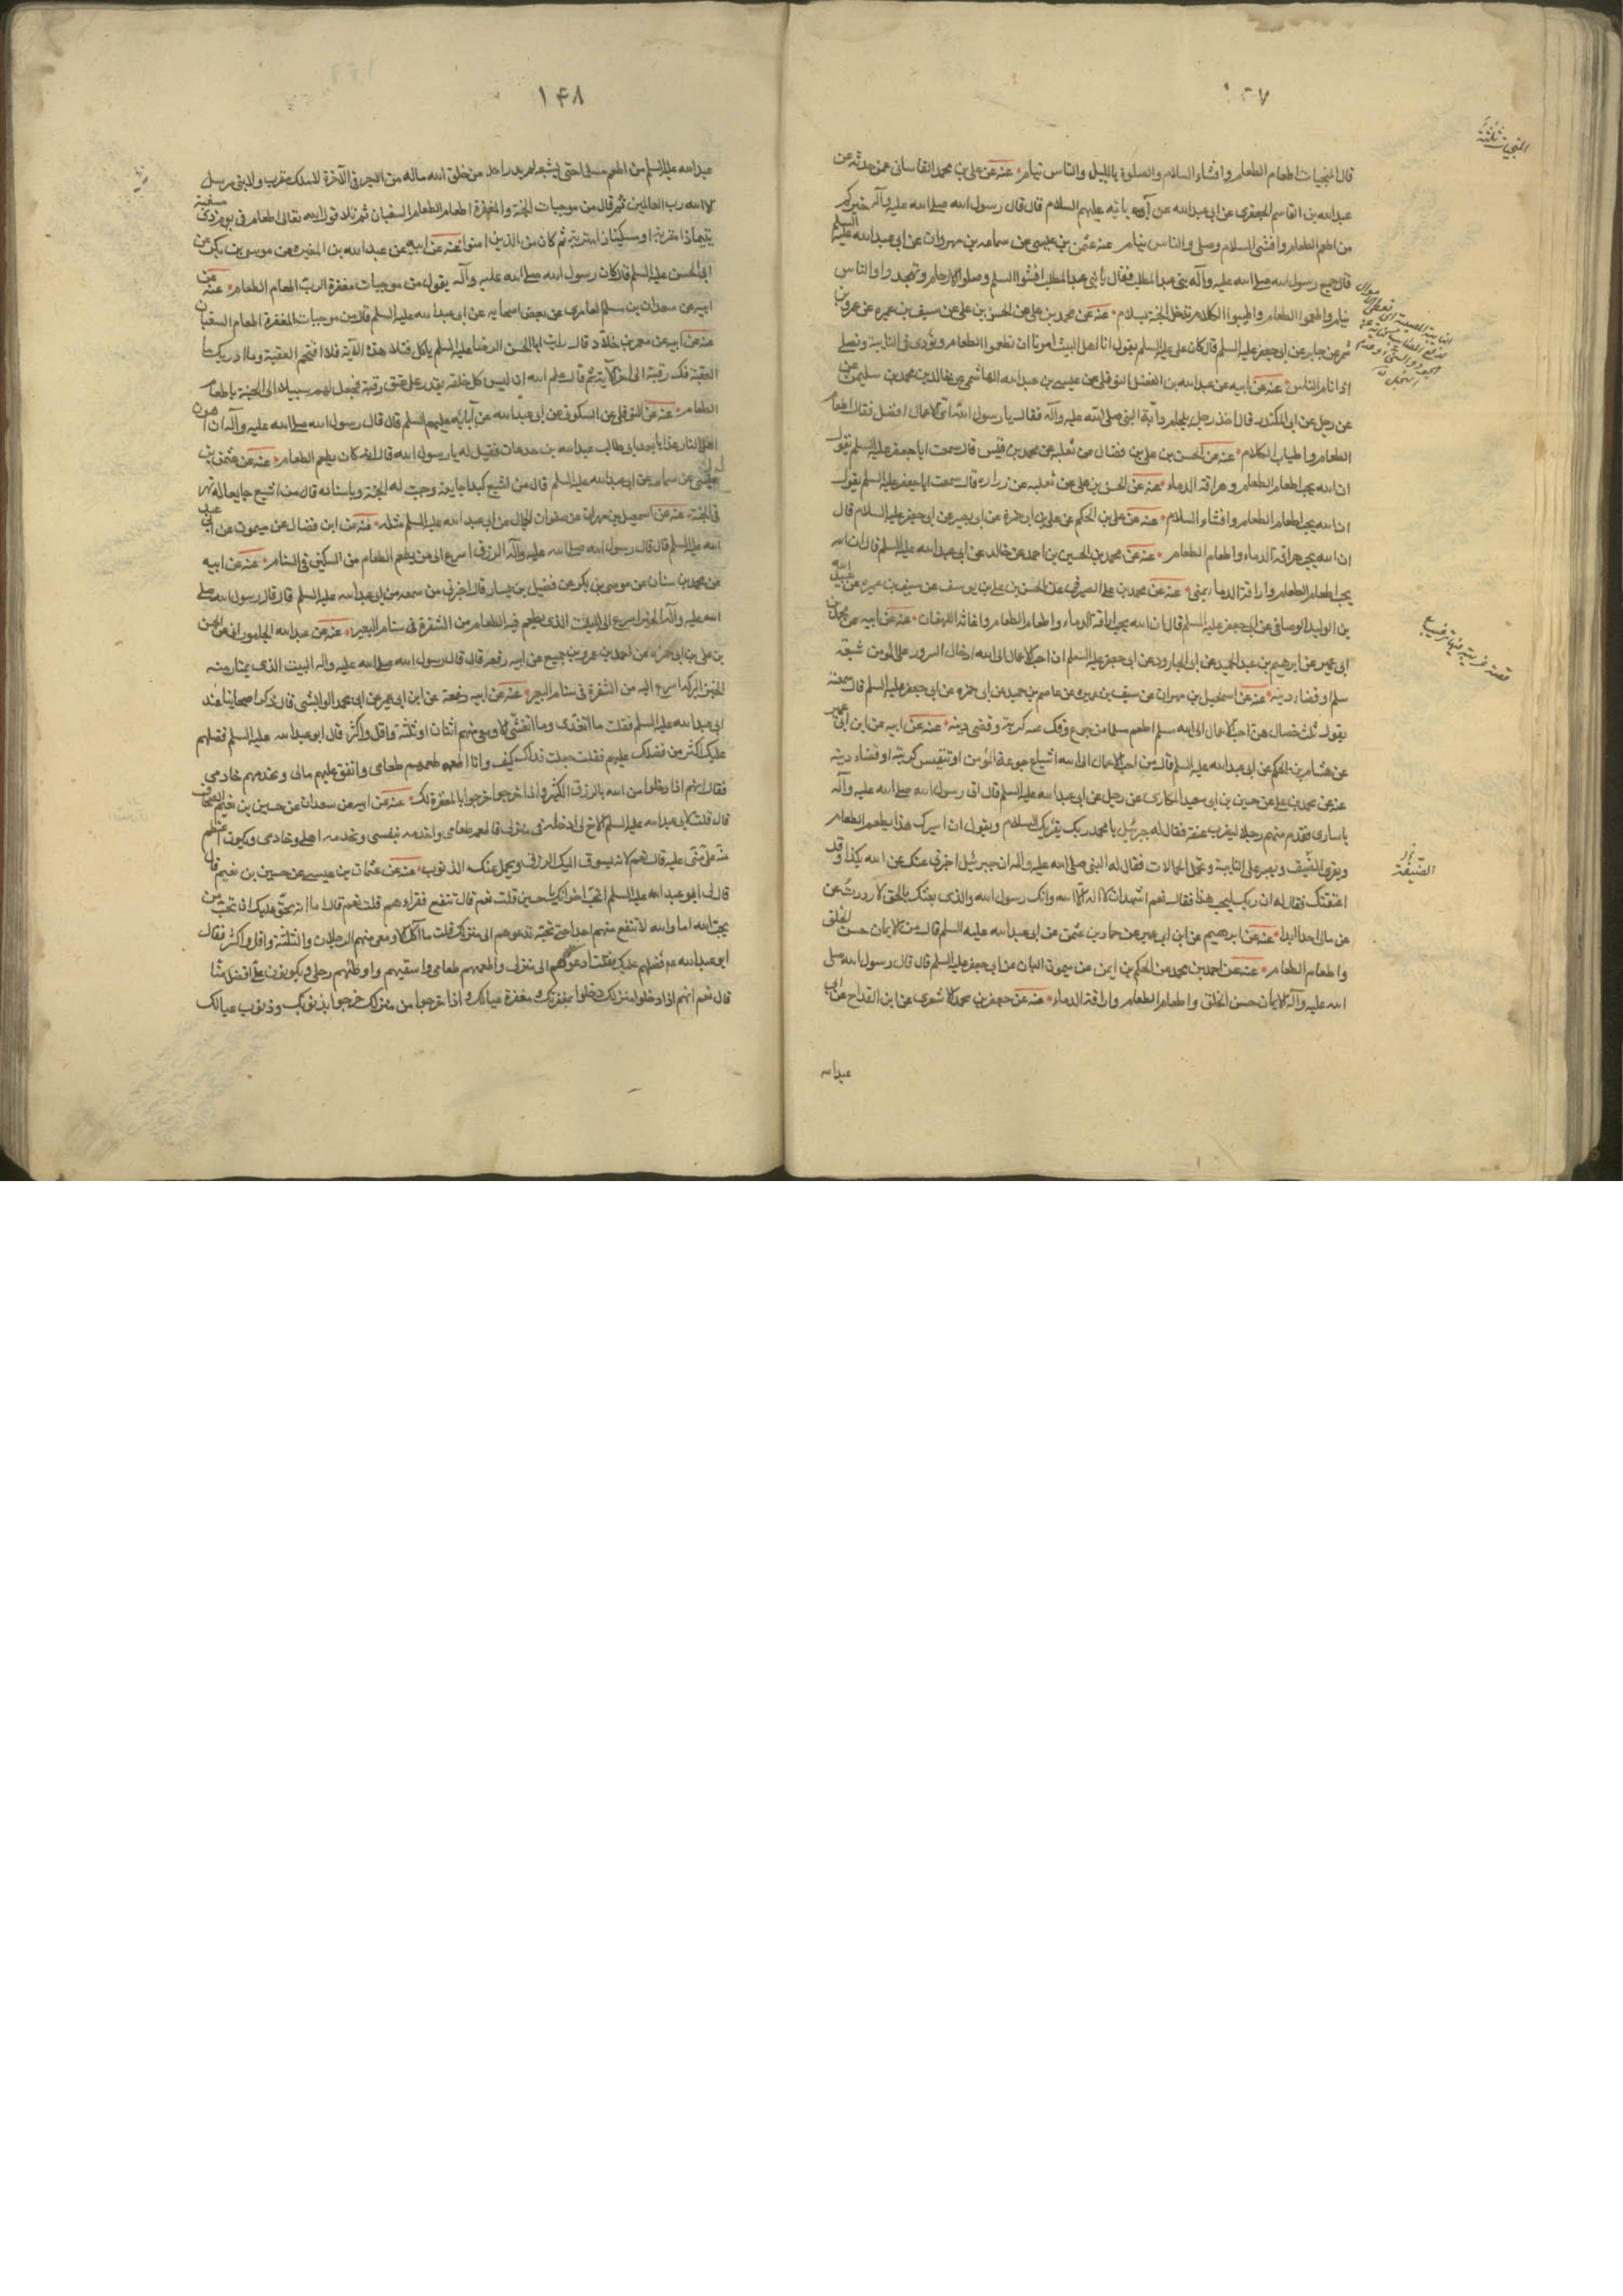 ١٤٧
قال المنجيات اطعام الطعام وافشاء السلام والصلوة بالليل والناس نيام عنه عن علي بن محمد القاساني عمن حدثه عن
عبدالله بن القاسم الجعفرى عن ابى عبدالله عن آبائه عليهم السلام قال قال رسول الله صلى الله عليه وآله خيركم
من اطعم الطعام وافشى السلام وصلى والناس نيام عنه عن عثمن بن عيسى عن سماعه بن مهران عن ابى عبدالله عليه السلم
قال جمع رسول الله صلى الله عليه وآله بنى عبدالمطلب فقال يا بنى عبدالمطلب افشوا السلم وصلوا الارحام وتهجدوا والناس
نيام واطعموا الطعام واطيبوا الكلام تدخلوا الجنة بسلام عنه عن محمد بن على عن الحسن بن على عن سيف بن عميره عن عمرو بن
شمر عن جابر عن ابى جعفر عليه السلم قال كان على عليه السلم يقول انا اهل البيت امرنا ان نطعم الطعام ونؤدى فى النايبة ونصلى
اذا نام الناس عنه عن ابيه عن عبدالله بن الفضل النوفلى عن عيسى بن عبدالله الهاشمى عن خالد بن محمد بن سليمن عن
رجل عن ابى المنكدر قال اخذ رجل بلجام دابة النبى صلى الله عليه وآله فقال يا رسول الله اى الاعمال افضل فقال اطعام
الطعام واطياب الكلام عنه عن الحسن بن على بن فضال عن ثعلبه عن محمد بن قيس قال سمعت ابا جعفر عليه السلم يقول
ان الله يحب اطعام الطعام وهراقة الدماء عنه عن الحسن بن على عن ثعلبه عن زراره قال سمعت ابا جعفر عليه السلم يقول
ان الله يحب اطعام الطعام وافشاء السلام عنه عن على بن الحكم عن على بن ابى حمزة عن ابى بصير عن ابى جعفر عليه السلام قال
ان الله يحب هراقة الدماء واطعام الطعام عنه عن محمد بن الحسين بن احمد عن خالد عن ابى عبدالله عليه السلم قال ان الله
يحب اطعام الطعام واراقة الدماء بمنى عنه عن محمد بن على الصيرفى عن الحسن بن على بن يوسف عن سيف بن عميره عن عبيد الله
بن الوليد الوصافى عن ابى جعفر عليه السلم قال ان الله يحب اراقة الدماء واطعام الطعام واغاثة اللهفان عنه عن ابيه عن محمد بن
ابى عمير عن ابرهيم بن عبد الحميد عن ابى الجارود عن ابى جعفر عليه السلم ان احب الاعمال الى الله ادخال السرور على المؤمن شبعة
مسلم او قضاء دينه عنه عن اسمعيل بن مهران عن سيف بن عميره عن عاصم بن حميد عن ابى حمزه عن ابى جعفر عليه السلم قال سمعته
يقول ثلث خصال هن احب الاعمال الى الله مسلم اطعم مسلما من جوع وفك عنه كربة وقضى دينه عنه عن ابيه عن ابن ابى عمير
عن هشام بن الحكم عن ابى عبدالله عليه السلم قال من احب الاعمال الى الله اشباع جوعة المؤمن او تنفيس كربته او قضاء دينه
عنه عن محمد بن على عن حسين بن ابى سعيد المكارى عن رجل عن ابى عبدالله عليه السلم قال اتى رسول الله صلى الله عليه وآله
باسارى فقدم منهم رجلا ليضرب عنقه فقال له جبرئيل يا محمد ربك يقرئك السلام ويقول ان اسيرك هذا يطعم الطعام
ويقرى الضيف ويصبر على النايبة ويحمل الحمالات فقال له النبى صلى الله عليه وآله ان جبرئيل اخبرنى عنك عن الله بكذا وقد
اعتقتك فقال له ان ربك ليحب هذا فقال نعم اشهد ان لا اله الا الله وانك رسول الله والذى بعثك بالحق لا رددت عن
عن مالى احدا ابدا عنه عن ابرهيم عن ابن ابى عمير عن حماد بن عثمن عن ابى عبدالله عليه السلم قال من الايمان حسن الخلق
واطعام الطعام عنه عن احمد بن محمد عن الحكم بن ايمن عن ميمون البان عن ابى جعفر عليه السلم قال قال رسول الله صلى
الله عليه وآله الايمان حسن الخلق واطعام الطعام واراقة الدماء عنه عن جعفر بن محمد الاشعرى عن ابن القداح عن ابى
عبدالله
المنجيات ثلثة
الضيفة
١٤٨
عبدالله عليه السلم من اطعم مسلما حتى يشبعه لم يدر احد من خلق الله ماله من الاجر فى الآخرة لا ملك مقرب ولا نبى مرسل
الا الله رب العالمين ثم قال من موجبات الجنة والمغفرة اطعام الطعام السغبان ثم تلا قول الله تعالى اطعام فى يوم ذى مسغبة
يتيما ذا مقربة او مسكينا ذا متربة ثم كان من الذين امنوا عنه عن ابيه عن عبدالله بن المغيره عن موسى بن بكر عن
ابى الحسن عليه السلم قال كان رسول الله صلى الله عليه وآله يقول من موجبات مغفرة الرب اطعام الطعام عنه عن
ابيه عن سعدان بن مسلم العامرى عن بعض اصحابه عن ابى عبدالله عليه السلم قال من موجبات المغفرة اطعام السغبان
عنه عن ابيه عن معمر بن خلاد قال رايت ابا الحسن الرضا عليه السلم ياكل فتلا هذه الآية فلا اقتحم العقبة وما ادريك ما
العقبة فك رقبة الى آخر الآية ثم قال علم الله ان ليس كل خلقه يقدر على عتق رقبة فجعل لهم سبيلا الى الجنة باطعام
الطعام عنه عن النوفلى عن السكونى عن ابى عبدالله عن آبائه عليهم السلم قال قال رسول الله صلى الله عليه وآله ان اهون
اهل النار عذابا بعد ابى طالب عبدالله بن جدعان فقيل له يا رسول الله قال انه كان يطعم الطعام عنه عن عثمن بن
عيسى عن سماعه عن ابى عبدالله عليه السلم قال من اشبع كبدا جايعة وجبت له الجنة وباسناده قال من اشبع جايعا له نهر
فى الجنة عنه عن اسمعيل بن مهران عن صفوان الجمال عن ابى عبدالله عليه السلم مثله عنه عن ابن فضال عن ميمون عن ابى عبد
الله عليه السلم قال قال رسول الله صلى الله عليه وآله الرزق اسرع الى من يطعم الطعام من السكين فى السنام عنه عن ابيه
عن محمد بن سنان عن موسى بن بكر عن فضيل بن يسار قال اخبرنى من سمعه من ابى عبدالله عليه السلم قال قال رسول الله صلى
الله عليه وآله الخير اسرع الى البيت الذى يطعم فيه الطعام من الشفرة فى سنام البعير عنه عن عبدالله الجامورانى عن الحسن
بن على بن ابى حمزه عن احمد بن عمرو بن جميع عن ابيه رفعه قال قال رسول الله صلى الله عليه وآله البيت الذى يمتار منه
الخبز البركة اسرع اليه من الشفرة فى سنام البعير عنه عن ابيه رفعة عن ابن ابى عمير عن ابى محمد الوابشى قال ذكر اصحابنا عند
ابى عبدالله عليه السلم فقلت ما اتغدى وما اتعشى الا ومعى منهم اثنان او ثلثة واقل واكثر قال ابو عبدالله عليه السلم فضلهم
عليك اكثر من فضلك عليهم فقلت جعلت فداك كيف وانا اطعمهم طعامى وانفق عليهم مالى ويخدمهم خادمى
فقال انهم اذا دخلوا من الله بالرزق الكثير واذا خرجوا خرجوا بالمغفرة لك عنه عن ابيه عن سعدان عن حسين بن نعيم الصحاف
قال قلت لابى عبدالله عليه السلم الاخ لى ادخله فى منزلى فاطعمه طعامى واخدمه بنفسى ويخدمه اهلى وخادمى ويكون اعظم
منة على منى عليه قال نعم لانه يسوق اليك الرزق ويحمل عنك الذنوب عنه عن عثمان بن عيسى عن حسين بن نعيم قال
قال لى ابو عبدالله عليه السلم اتحب اخوانك يا حسين قلت نعم قال تنفع فقراءهم قلت نعم قال اما انه يحق عليك ان تحب من
يحب الله اما والله لا تنفع منهم احدا حتى تحبه تدعوهم الى منزلك قلت ما آكل الا ومعى منهم الرجلان والثلثة واقل واكثر فقال
ابو عبدالله ع فضلهم عليك فقلت ادعوهم الى منزلى واطعمهم طعامى واسقيهم واوطئهم رحلى ويكونون على افضل منا
قال نعم انهم اذا دخلوا منزلك دخلوا بمغفرتك ومغفرة عيالك واذا خرجوا من منزلك خرجوا بذنوبك وذنوب عيالك